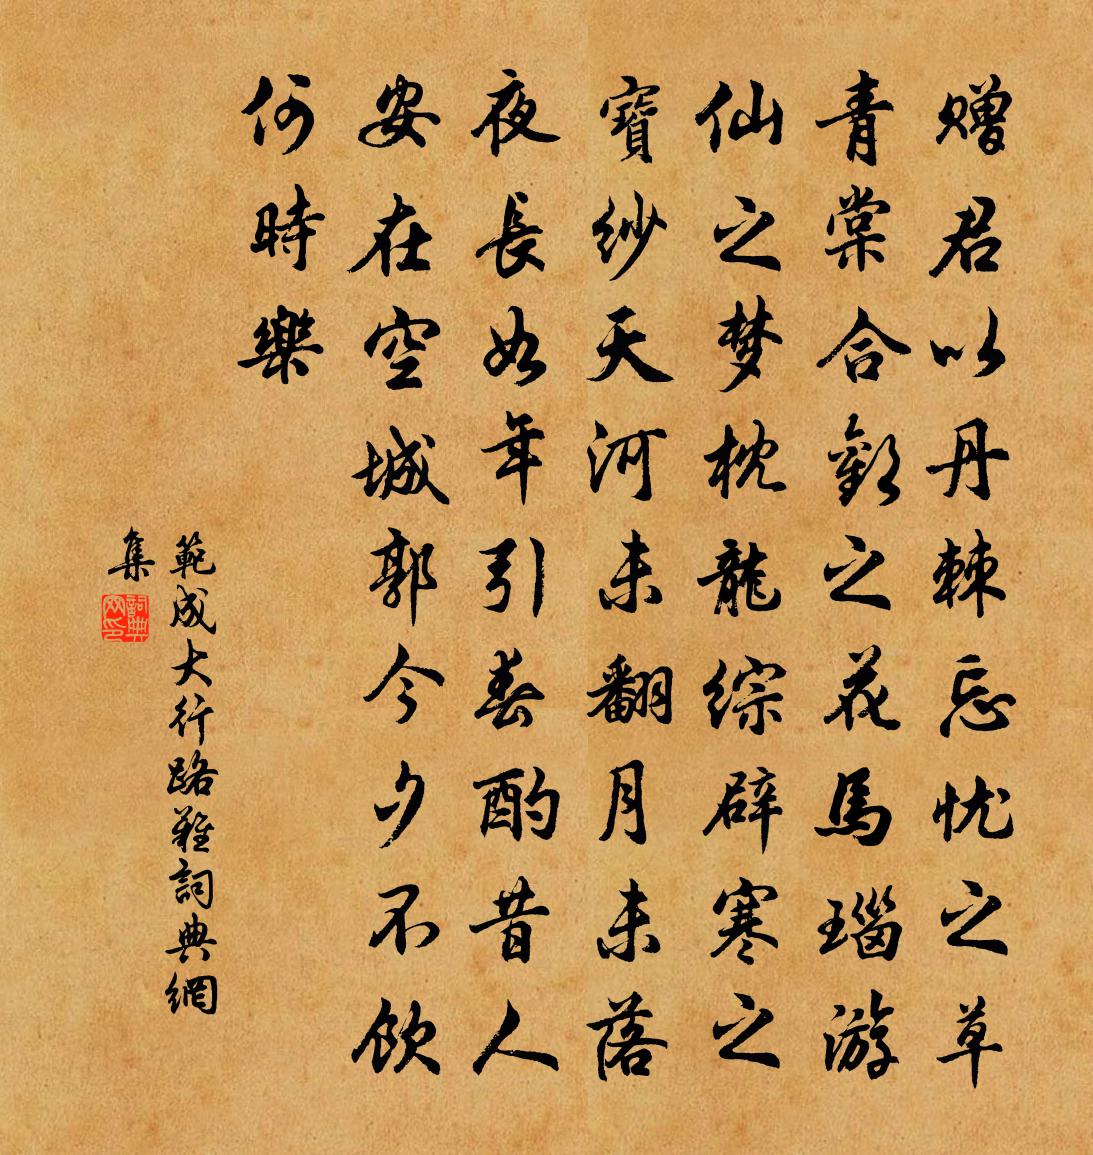 赠君以丹棘忘忧之草
青棠合歡之花馬瑙游
仙之梦枕龍综辟寒之
寶纱天河未翻月未落
夜長如年引春酌昔人
安在空城郭今夕不飲
何時樂
範成大行路難詞典網
集
詞典網印